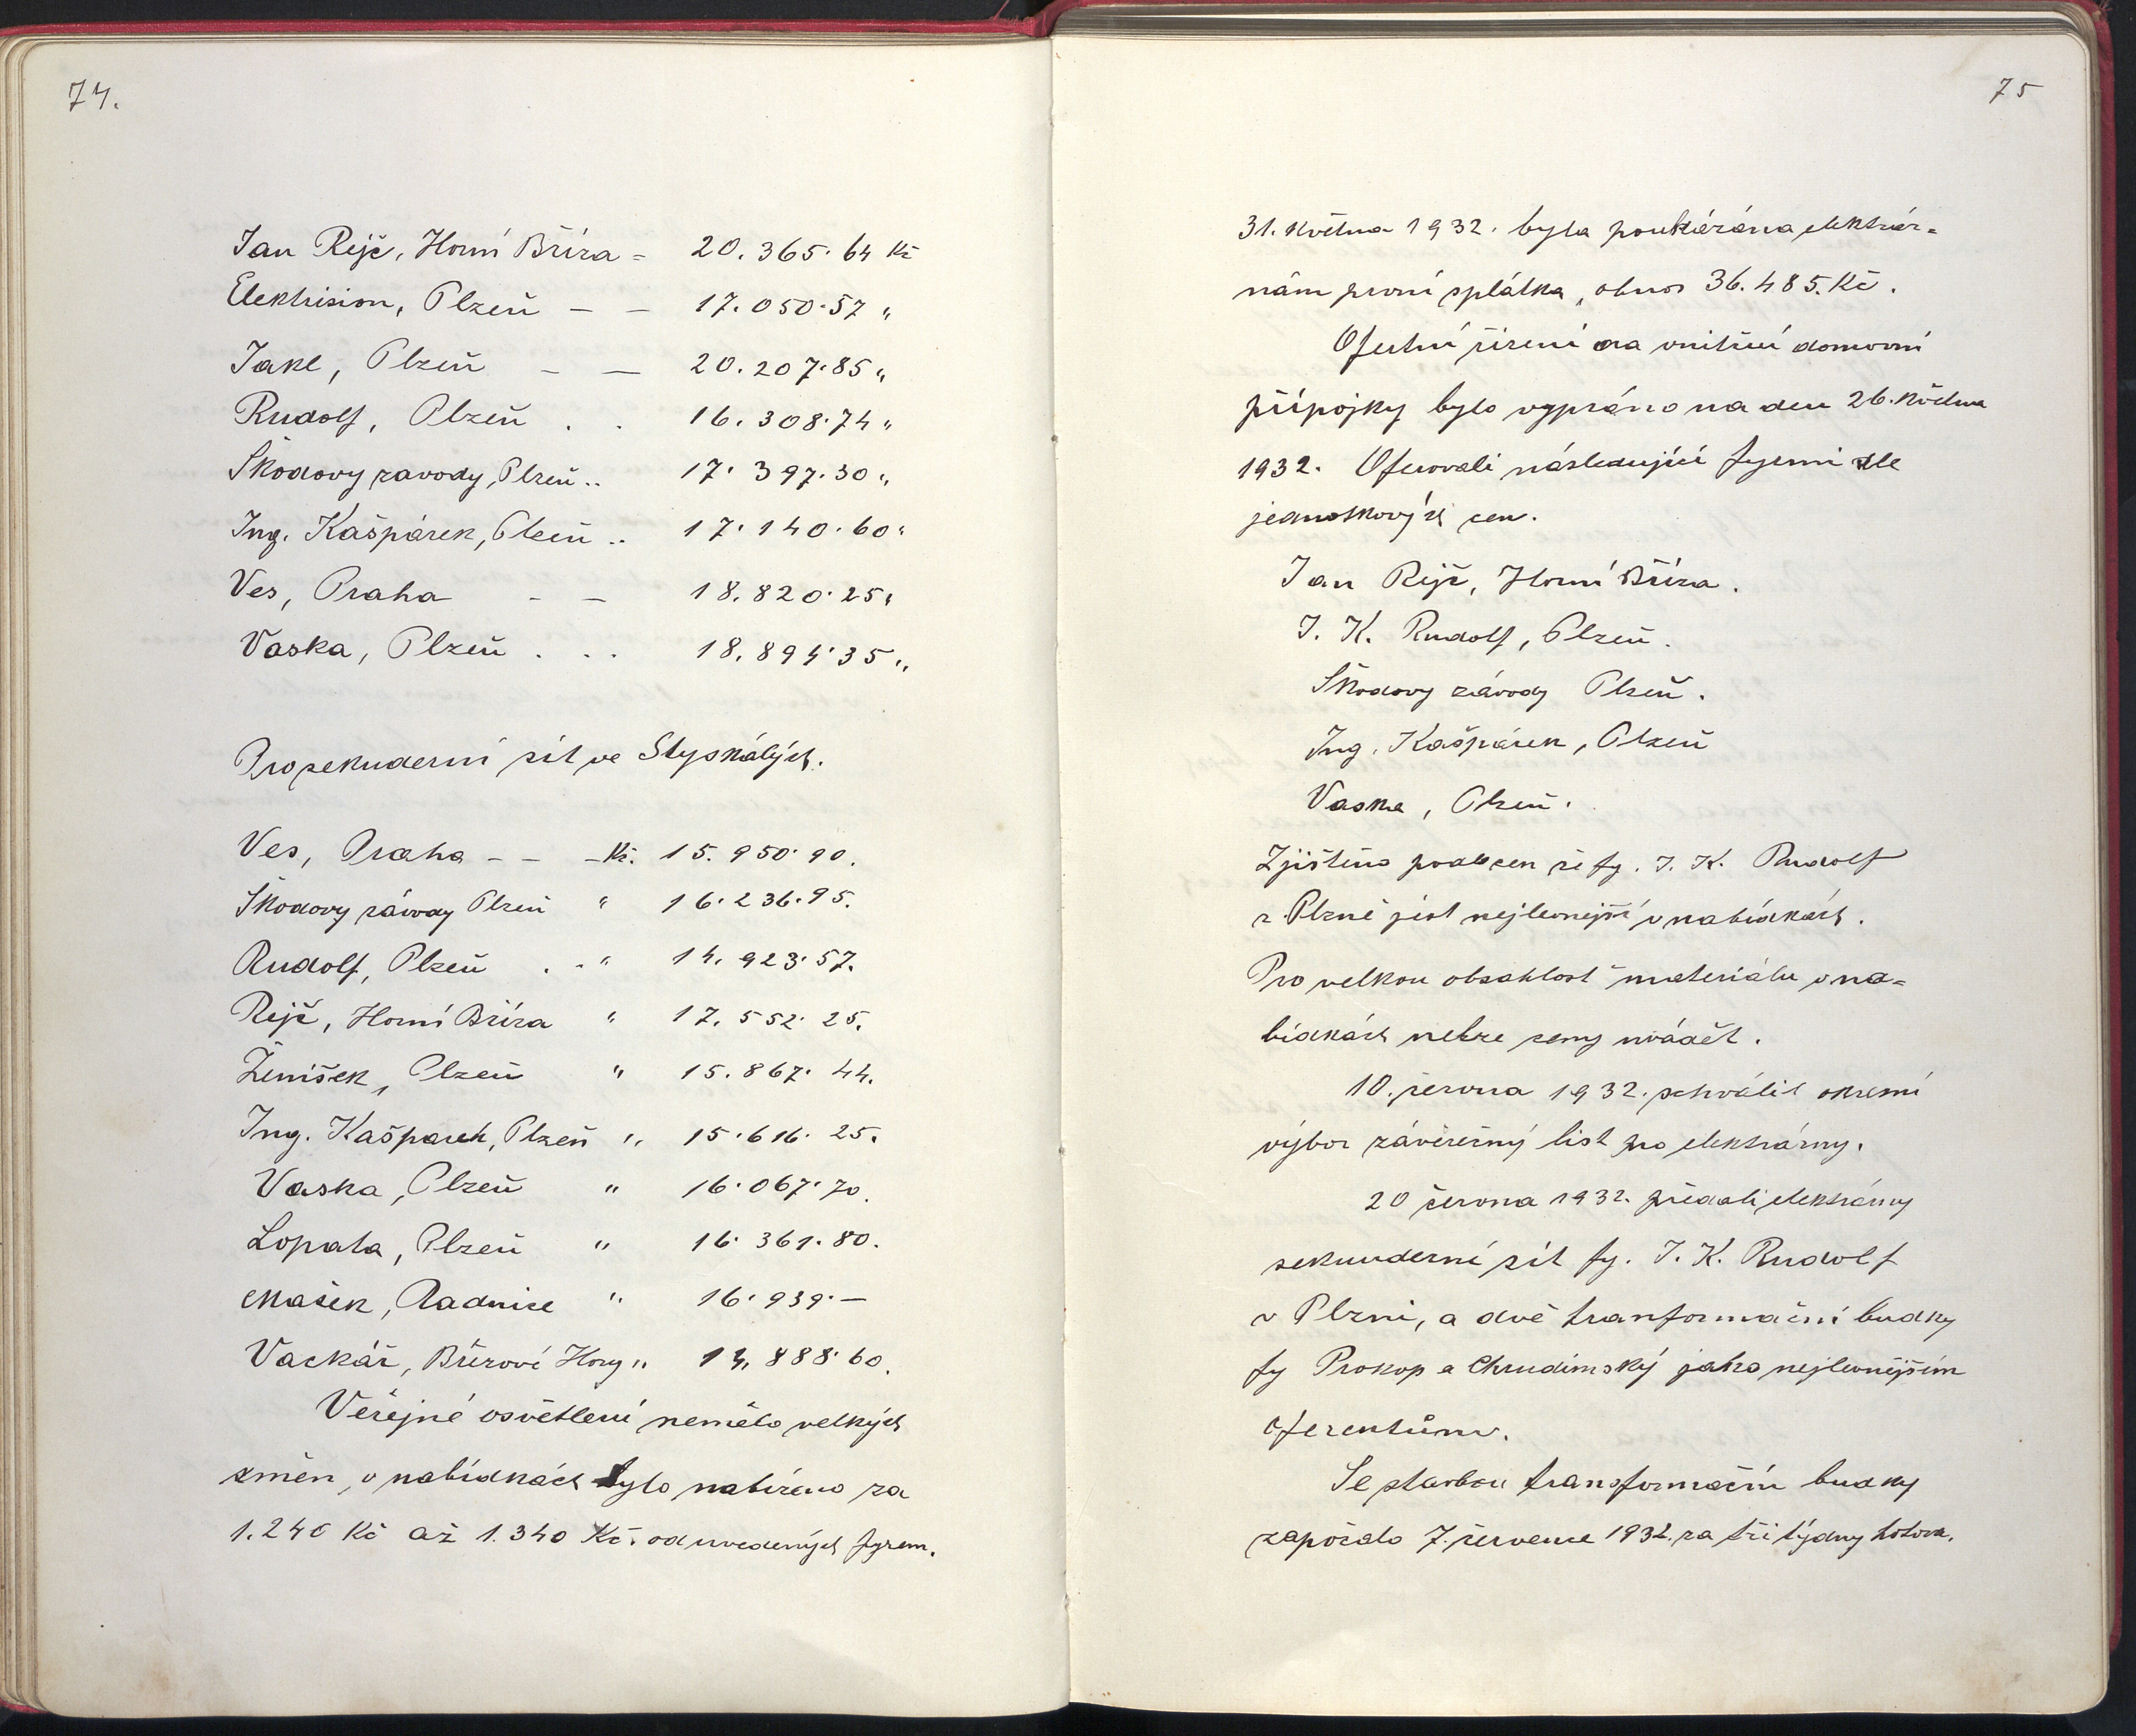 74.
Jan Rejč, Horní Bříza = 20.365.64 Kč
Elektrision, Plzeň — — 17.050.57 „
Jakl, Plzeň — — 20.207.85 „
Rudolf, Plzeň . . 16.308.74 „
Škodovy zavody, Plzeň .. 17.397.30 „
Ing. Kašpárek, Plzeň .. 17.140.60 „
Ves, Praha — — 18.820.25 „
Vaska, Plzeň . . . 18.894.35 „
Pro sekuderní sít ve Stýskálých.
Ves, Praha — — — Kč. 15.950.90.
Škodovy závody Plzeň " 16.236.95.
Rudolf, Plzeň . . " 14.923.57.
Rejč, Horní Bříza " 17.552.25.
Ženíšek, Plzeň " 15.867.44.
Ing. Kašparek, Plzeň " 15.616.25.
Vaska, Plzeň " 16.067.70.
Lopata, Plzeň " 16.361.80.
Mašek, Radnice " 16.939.—
Vackář, Břízové Hory " 14.888.60.
Veřejné osvětlení nemělo velkých
změn, v nabídkách bylo nabízeno za
1.240 Kč až 1.340 Kč. od uvedených fyrem.
75
31. května 1932. byla poukázána elektrár=
nám první splátka, obnos 36.485. Kč.
Ofertní řízení na vnitřní domovní
přípojky bylo vypsáno na den 26. května
1932. Oferovali následující fyrmi dle
jednotkových cen.
Jan Rejč, Horní Bříza.
J. K. Rudolf, Plzeň.
Škodovy závody Plzeň.
Ing. Kašpárek, Plzeň
Vaska, Plzeň.
Zjištěno podle cen že fy. J. K. Rudolf
z Plzně jest nejlevnejší v nabídkách.
Pro velkou obsáhlost materiálu v na=
bídkách nelze ceny uvádět.
10. června 1932. schválil okresní
výbor závěrečný list pro elektrárny.
20 června 1932. předali elektrárny
sekunderní sít fy. J. K. Rudolf
v Plzni, a dvě tranformační budky
fy Prokop a Chrudimský jako nejlevnějším
oferentům.
Se stavbou transformační budky
započalo 7. července 1932. za tři týdny hotova.